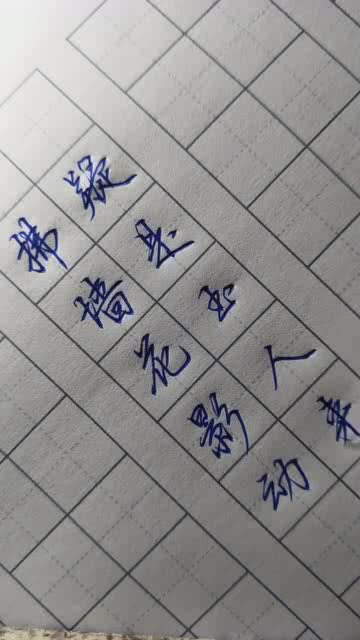 拂墙花影动
疑是玉人来